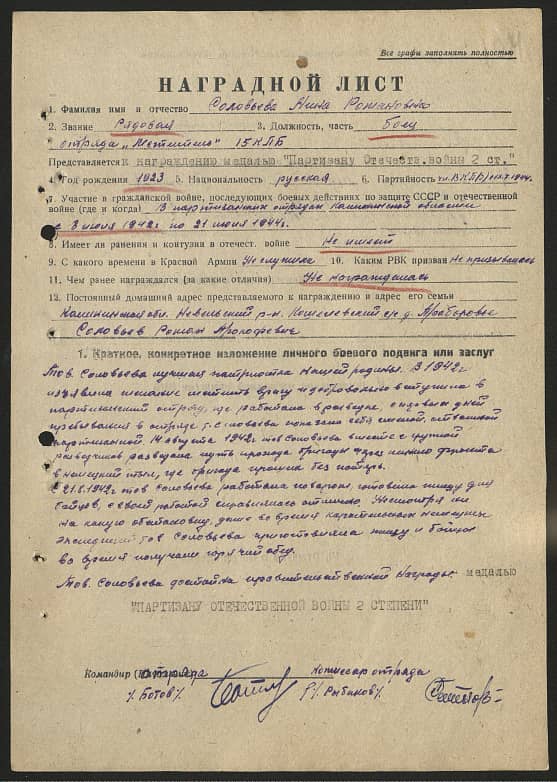 Все графы заполнять полностью
НАГРАДНОЙ ЛИСТ
1. Фамилия имя и отчество Соловьева Нина Романовна
2. Звание Рядовая 3. Должность, часть боец
отряда „Мстители" 15 КПБ
Представляется к награждению медалью "Партизану Отечеств.войны 2 ст."
4. Год рождения 1923 5. Национальность русская 6. Партийность
7. Участие в гражданской войне, последующих боевых действиях по защите СССР и отечественной
войне (где и когда) В партизанских отрядах Калининской области
с 3 июня 1942г по 21 июня 1944г.
8. Имеет ли ранения и контузия в отечест. войне Не имеет
9. С какого времени в Красной Армии Не служила 10. Каким РВК призван Не призывалась
11. Чем ранее награждался (за какие отличия) Не награждалась
12. Постоянный домашний адрес представляемого к награждению и адрес его семьи
Калининская обл. Невельский р-н. Кошелевский с/с д.
Соловьев Роман Прокофьевич
1. Краткое, конкретное изложение личного боевого подвига или заслуг
Тов. Соловьева лучшая патриотка нашей родины. В 1942г
изъявила желание мстить врагу и добровольно вступила в
партизанский отряд, где работала в разведке, с первых дней
пребывания в отряде т. Соловьева показала себя смелой,
партизанкой. 14 августа 1942г. тов Соловьева вместе с группой
разведчиков разведала путь прохода бригады через линию фронта
в немецкий тыл, где бригада прошла без потерь.
С 21.8.1942г тов Соловьева работала поваром, готовила пищу для
бойцов, с своей работой справилась отлично. Несмотря ни
на какую обстановку, даже во время карательных немецких
экспедиций тов Соловьева приготовляла пищу и бойцы
во время получали горячий обед.
Тов. Соловьева достойна правительственной награды медалью
"ПАРТИЗАНУ ОТЕЧЕСТВЕННОЙ ВОЙНЫ 2 СТЕПЕНИ"
Командир отряда Комиссар отряда
/Ботов/ /Рыбаков/